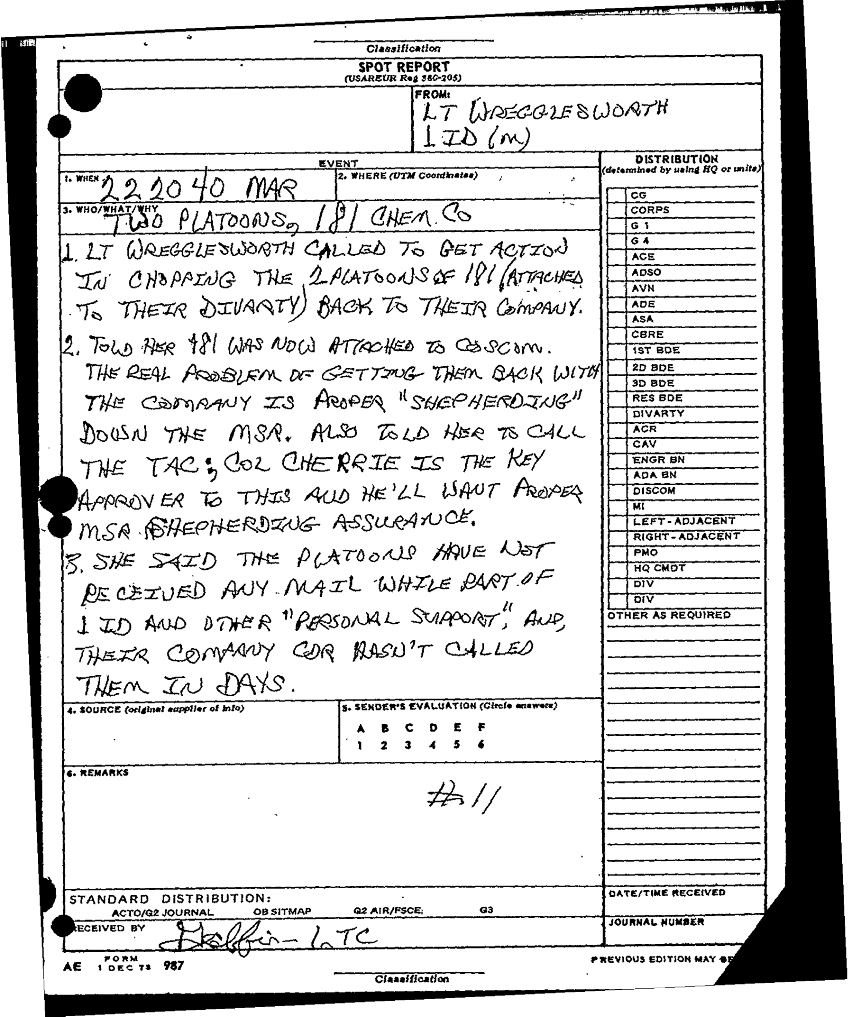 Classification
SPOT REPORT
(USAREUR Reg 380-205)
FROM:
LT WREGGLESWORTH
1 ID (M)
EVENT
1. WHEN
222040 MAR
2. WHERE (UTM Coordinates)
3. WHO/WHAT/WHY
TWO PLATOONS, 181 CHEM. CO
1. LT WREGGLESWORTH CALLED TO GET ACTION
IN CHOPPING THE 2 PLATOONS OF 181 (ATTACHED
TO THEIR DIVARTY) BACK TO THEIR COMPANY.
2. TOLD HER 181 WAS NOW ATTACHED TO COSCOM.
THE REAL PROBLEM OF GETTING THEM BACK WITH
THE COMPANY IS PROPER "SHEPHERDING"
DOWN THE MSR. ALSO TOLD HER TO CALL
THE TAC; COL CHERRIE IS THE KEY
APPROVER TO THIS AND HE'LL WANT PROPER
MSR SHEPHERDING ASSURANCE.
3. SHE SAID THE PLATOONS HAVE NOT
RECEIVED ANY MAIL WHILE PART OF
1 ID AND OTHER "PERSONAL SUPPORT", AND,
THEIR COMPANY CDR HASN'T CALLED
THEM IN DAYS.
4. SOURCE (original supplier of info)
5. SENDER'S EVALUATION (Circle answers)
A B C D E F
1 2 3 4 5 6
6. REMARKS
#11
STANDARD DISTRIBUTION:
ACTO/G2 JOURNAL OB SITMAP G2 AIR/FSCE; G3
RECEIVED BY
LTC
DISTRIBUTION
(determined by using HQ or units)
CG
CORPS
G 1
G 4
ACE
ADSO
AVN
ADE
ASA
CBRE
1ST BDE
2D BDE
3D BDE
RES BDE
DIVARTY
ACR
CAV
ENGR BN
ADA BN
DISCOM
MI
LEFT-ADJACENT
RIGHT-ADJACENT
PMO
HQ CMDT
DIV
DIV
OTHER AS REQUIRED
DATE/TIME RECEIVED
JOURNAL NUMBER
AE FORM 1 DEC 78 987
PREVIOUS EDITION MAY BE
Classification